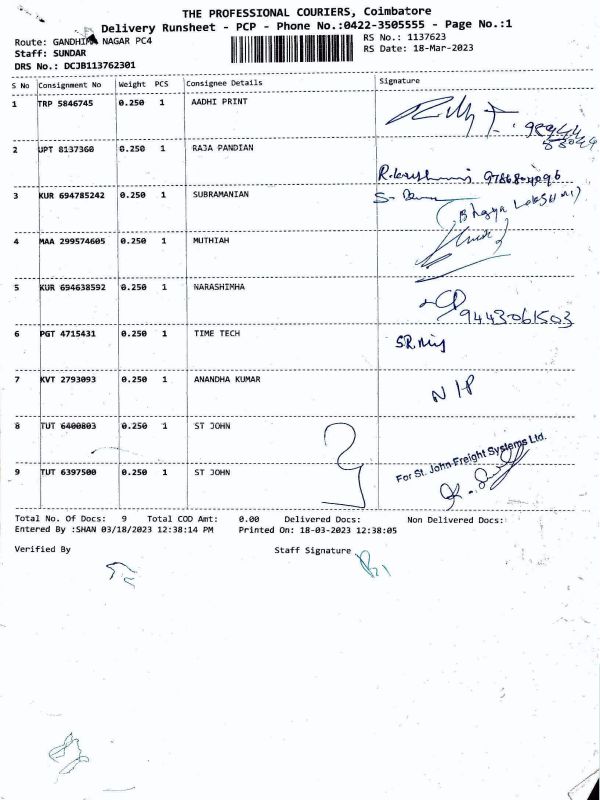 THE PROFESSIONAL COURIERS, Coimbatore
Delivery Runsheet - PCP - Phone No.:0422-3505555 - Page No.:1
Route: GANDHIMA NAGAR PC4 RS No.: 1137623
Staff: SUNDAR RS Date: 18-Mar-2023
DRS No.: DCJB113762301
S No Consignment No Weight PCS Consignee Details Signature
1 TRP 5846745 0.250 1 AADHI PRINT
2 UPT 8137360 0.250 1 RAJA PANDIAN
3 KUR 694785242 0.250 1 SUBRAMANIAN
4 MAA 299574605 0.250 1 MUTHIAH
5 KUR 694638592 0.250 1 NARASHIMHA
9443061503
6 PGT 4715431 0.250 1 TIME TECH
7 KVT 2793093 0.250 1 ANANDHA KUMAR
8 TUT 6400803 0.250 1 ST JOHN
For St. John Freight Systems Ltd.
9 TUT 6397500 0.250 1 ST JOHN
Total No. Of Docs: 9 Total COD Amt: 0.00 Delivered Docs: Non Delivered Docs:
Entered By :SHAN 03/18/2023 12:38:14 PM Printed On: 18-03-2023 12:38:05
Verified By Staff Signature